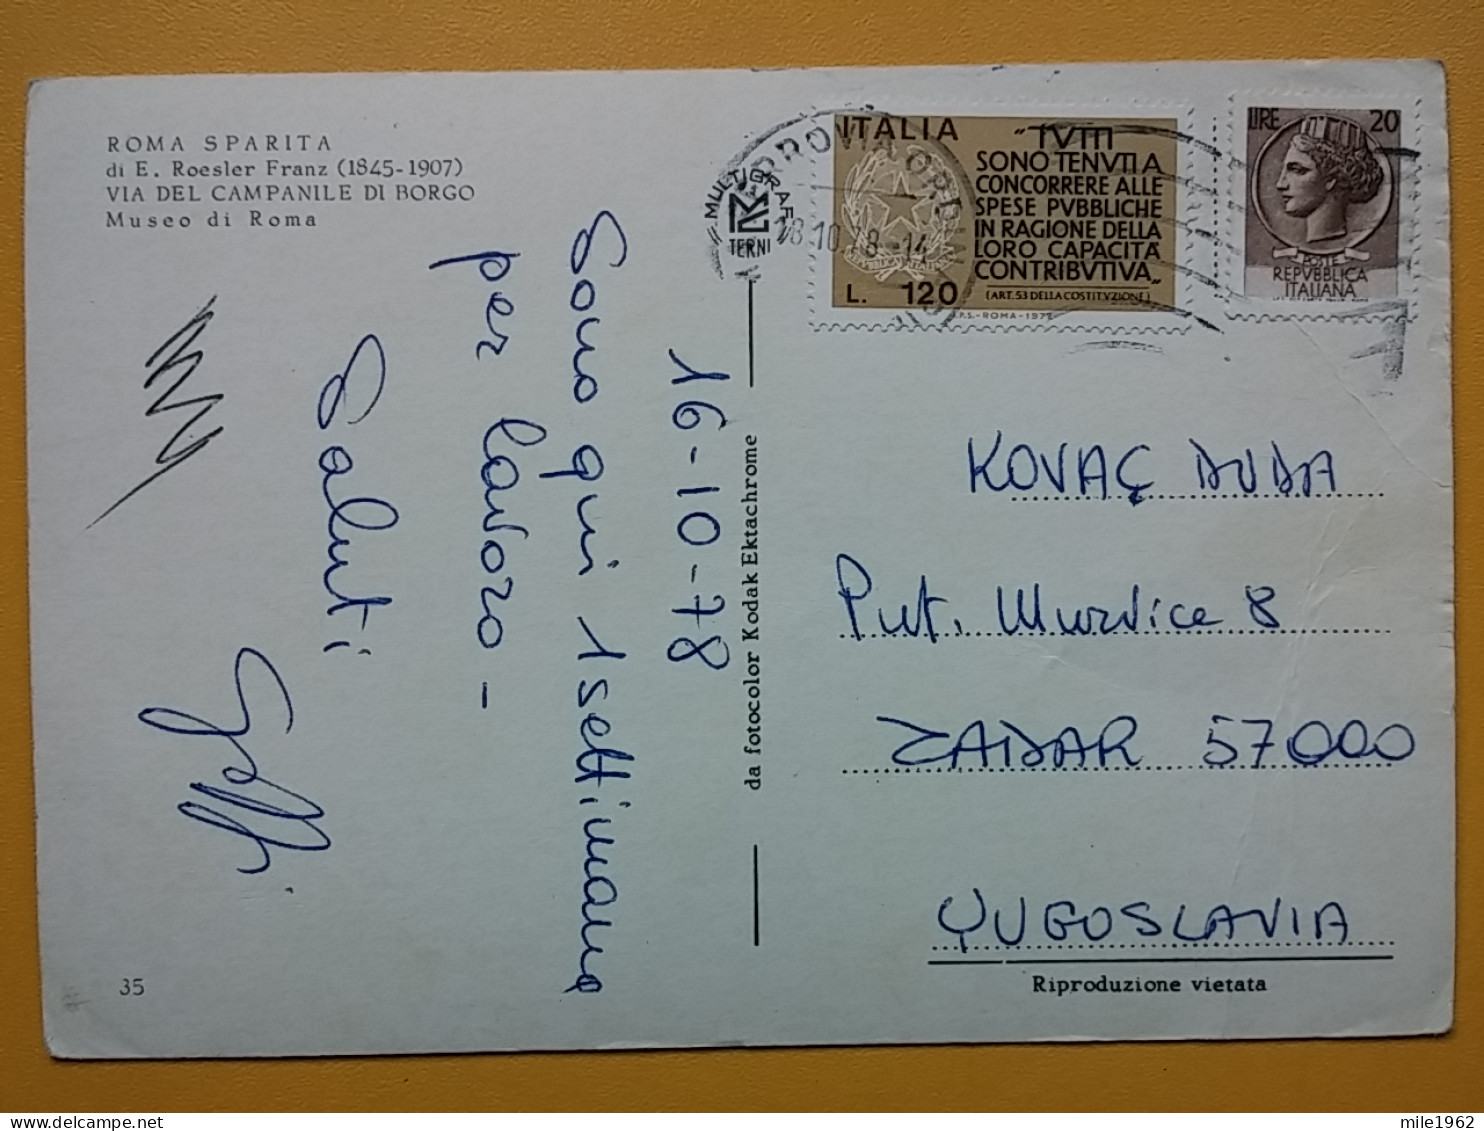 ROMA SPARITA
di E. Roesler Franz (1845-1907)
VIA DEL CAMPANILE DI BORGO
Museo di Roma
16-10-78
Sono qui 1 settimana
per lavoro -
Saluti
35
MULTIGRAF
TERNI
da fotocolor Kodak Ektachrome
ITALIA
"TVTTI
SONO TENVTI A
CONCORRERE ALLE
SPESE PVBBLICHE
IN RAGIONE DELLA
LORO CAPACITÀ
CONTRIBVTIVA"
(ART. 53 DELLA COSTITVZIONE)
L. 120
I.P.S.-ROMA-1977
LIRE 20
POSTE
REPVBBLICA
ITALIANA
18.10.78-14
KOVAÇ DUDA
Put. Murvice 8
ZADAR 57000
YUGOSLAVIA
Riproduzione vietata
mile1962